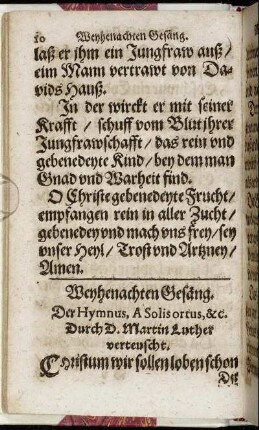 10 Weyhenachten Gesäng.
laß er jhm ein Jungfraw auß /
eim Mann vertrawt von Da-
vids Hauß.
In der wirckt er mit seiner
Krafft / schuff vom Blut jhrer
Jungfrawschafft / das rein vnd
gebenedeyte Kind / bey dem man
Gnad vnd Warheit find.
O Christe gebenedeyte Frucht /
empfangen rein in aller Zucht /
gebenedey vnd mach vns frey / sey
vnser Heyl / Trost vnd Artzney /
Amen.
Weyhenachten Gesäng.
Der Hymnus, A Solis ortus, &c.
Durch D. Martin Luther
verteuscht.
CHristum wir sollen loben schon